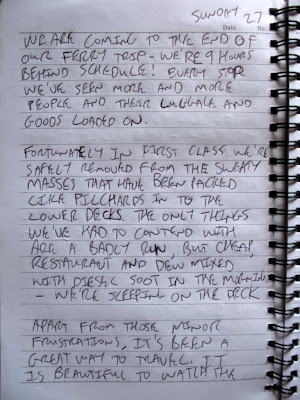 SUNDAY 27
Date No.
WE ARE COMING TO THE END OF
OUR FERRY TRIP - WE'RE 9 HOURS
BEHIND SCHEDULE! EVERY STOP
WE'VE SEEN MORE AND MORE
PEOPLE AND THEIR LUGGAGE AND
GOODS LOADED ON.
FORTUNATELY IN FIRST CLASS WE'RE
SAFELY REMOVED FROM THE SWEATY
MASSES THAT HAVE BEEN PACKED
LIKE PILCHARDS IN TO THE
LOWER DECKS. THE ONLY THINGS
WE'VE HAD TO CONTEND WITH
ARE A BADLY RUN, BUT CHEAP,
RESTAURANT AND DEW MIXED
WITH DIESEL SOOT IN THE MORNINGS
- WE'RE SLEEPING ON THE DECK
APART FROM THOSE MINOR
FRUSTRATIONS, IT'S BEEN A
GREAT WAY TO TRAVEL. IT
IS BEAUTIFUL TO WATCH THE